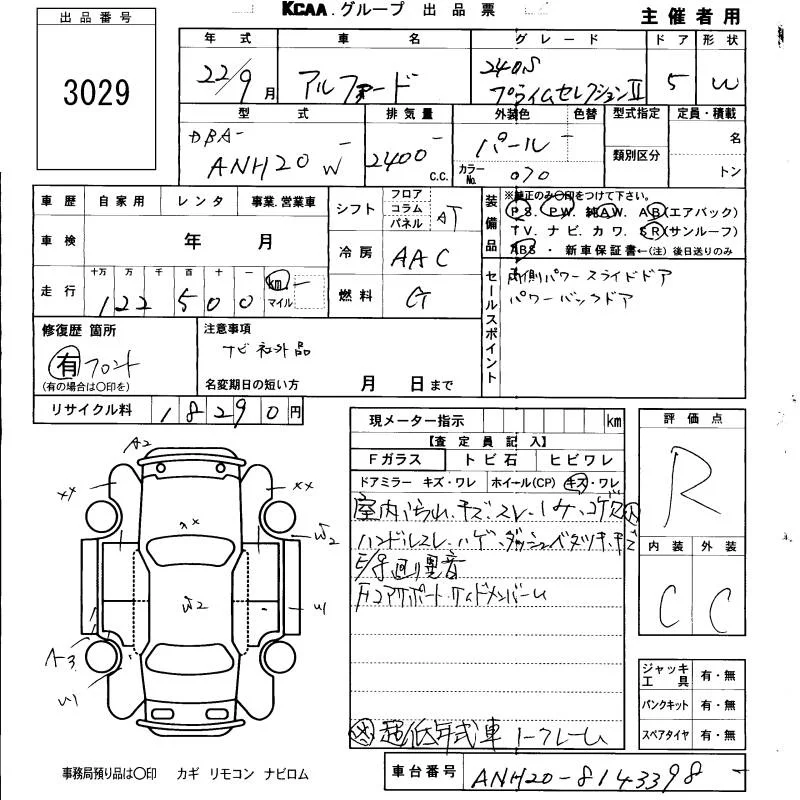 KCAA.グループ 出品票
主催者用
出品番号
3029
年式 車名 グレード ドア 形状
22/9月 アルファード 240S プライムセレクションⅡ 5 W
型式 排気量 外装色 色替 型式指定 定員・積載
DBA-
ANH20W 2400 C.C. パール 名
カラーNo. 070 類別区分 トン
車歴 自家用 レンタ 事業.営業車
シフト フロア コラム パネル AT
装備品 ※純正のみ○印をつけて下さい。
PS. PW. 純AW. AB(エアバック)
TV. ナビ. カワ. SR(サンルーフ)
ABS・新車保証書←(注)後日送りのみ
車検 年 月
冷房 AAC
走行 十万 万 千 百 十 一
122500 km マイル
燃料 G
セールスポイント
両側パワースライドドア
パワーバックドア
修復歴 箇所
有 フロント
(有の場合は○印を)
注意事項
ナビ社外品
名変期日の短い方 月 日まで
リサイクル料 18290円
現メーター指示 km
【査定員記入】
Fガラス トビ石 ヒビワレ
ドアミラー キズ・ワレ ホイール(CP) キズ・ワレ
室内 キズ・スレ・シミ・コゲ穴
ハンドルスレ・ハゲ・ダッシュベタツキ・キズ
E/G廻り異音
Fコアサポート・サイドメンバーU
超低年式車
評価点
R
内装 外装
C C
ジャッキ工具 有・無
パンクキット 有・無
スペアタイヤ 有・無
A2
XX
XX
XX
W2
W2
U1
A3
U1
事務局預り品は○印 カギ リモコン ナビロム
車台番号 ANH20-8143398